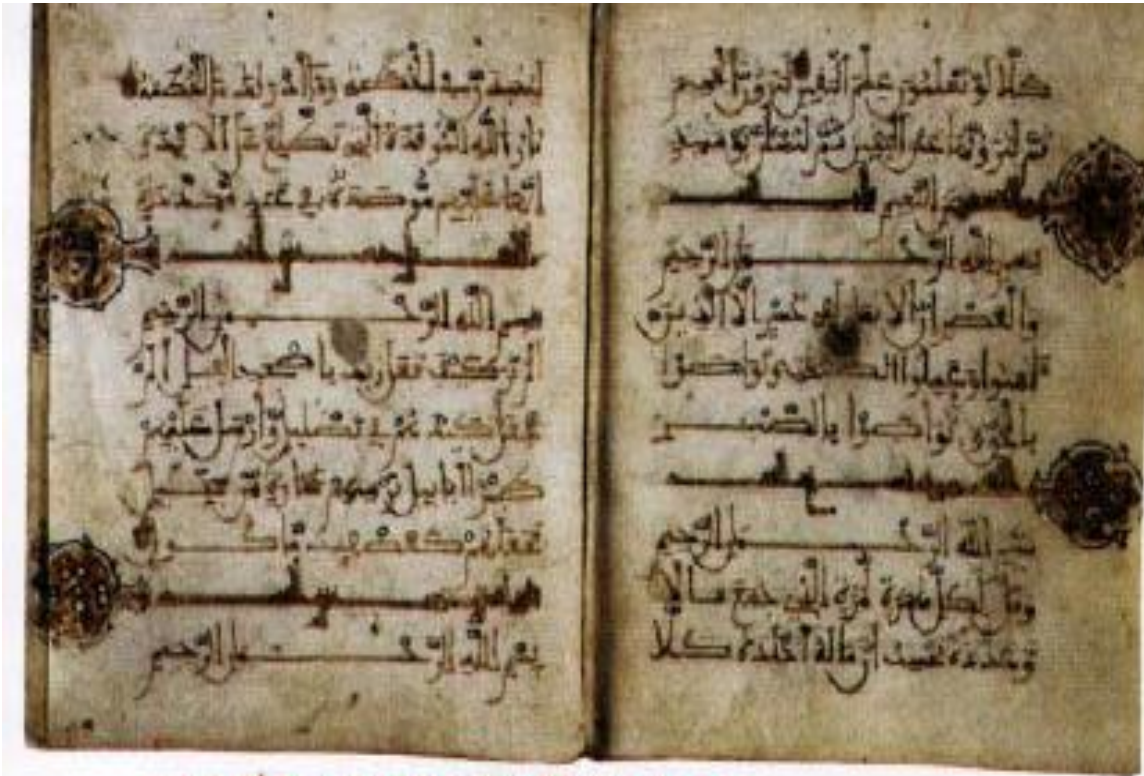 كلا لو تعلمون علم اليقين لترون الجحيم
ثم لترونها عين اليقين ثم لتسئلن يومئذ
عن النعيم
بسم الله الرحمن الرحيم
والعصر ان الانسان لفي خسر الا الذين
امنوا وعملوا الصلحت وتواصوا
بالحق وتواصوا بالصبر
بسم الله الرحمن الرحيم
ويل لكل همزة لمزة الذي جمع مالا
وعدده يحسب ان ماله اخلده كلا
لينبذن في الحطمة وما ادراك ما الحطمة
نار الله الموقدة التي تطلع على الافئدة
انها عليهم مؤصدة في عمد ممددة
بسم الله الرحمن الرحيم
الم تر كيف فعل ربك باصحب الفيل الم
يجعل كيدهم في تضليل وارسل عليهم
طيرا ابابيل ترميهم بحجارة من سجيل
فجعلهم كعصف ماكول
بسم الله الرحمن الرحيم